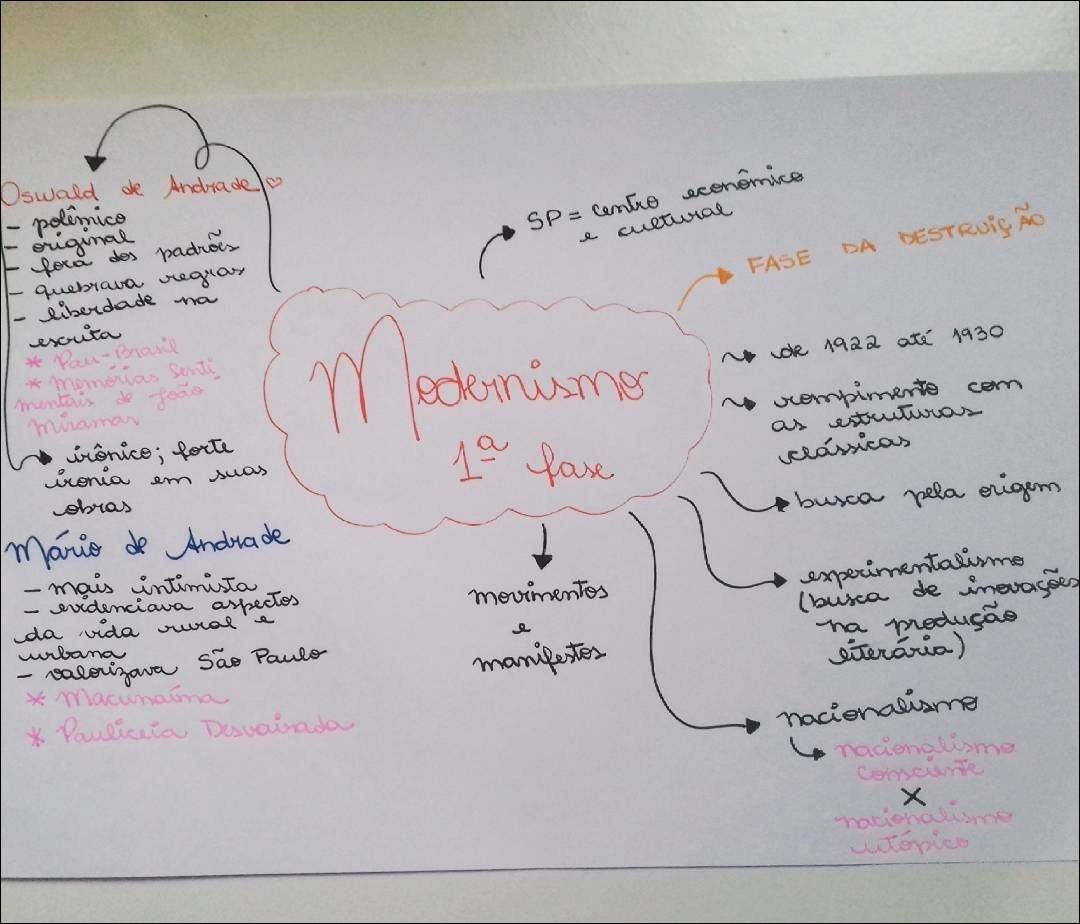 Modernismo
1ª fase
Oswald de Andrade ♡
- polêmico
- original
- fora dos padrões
- quebrava regras
- liberdade na
escrita
* Pau-Brasil
* Memórias Senti
mentais de João
Miramar
irônico; forte
ironia em suas
obras
Mário de Andrade
- mais intimista
- evidenciava aspectos
da vida rural e
urbana
- valorizava São Paulo
* Macunaíma
* Pauliceia Desvairada
SP = centro econômico
e cultural
FASE DA DESTRUIÇÃO
de 1922 até 1930
rompimento com
as estruturas
clássicas
busca pela origem
experimentalismo
(busca de inovações
na produção
literária)
nacionalismo
nacionalismo
consciente
X
nacionalismo
utópico
movimentos
e
manifestos